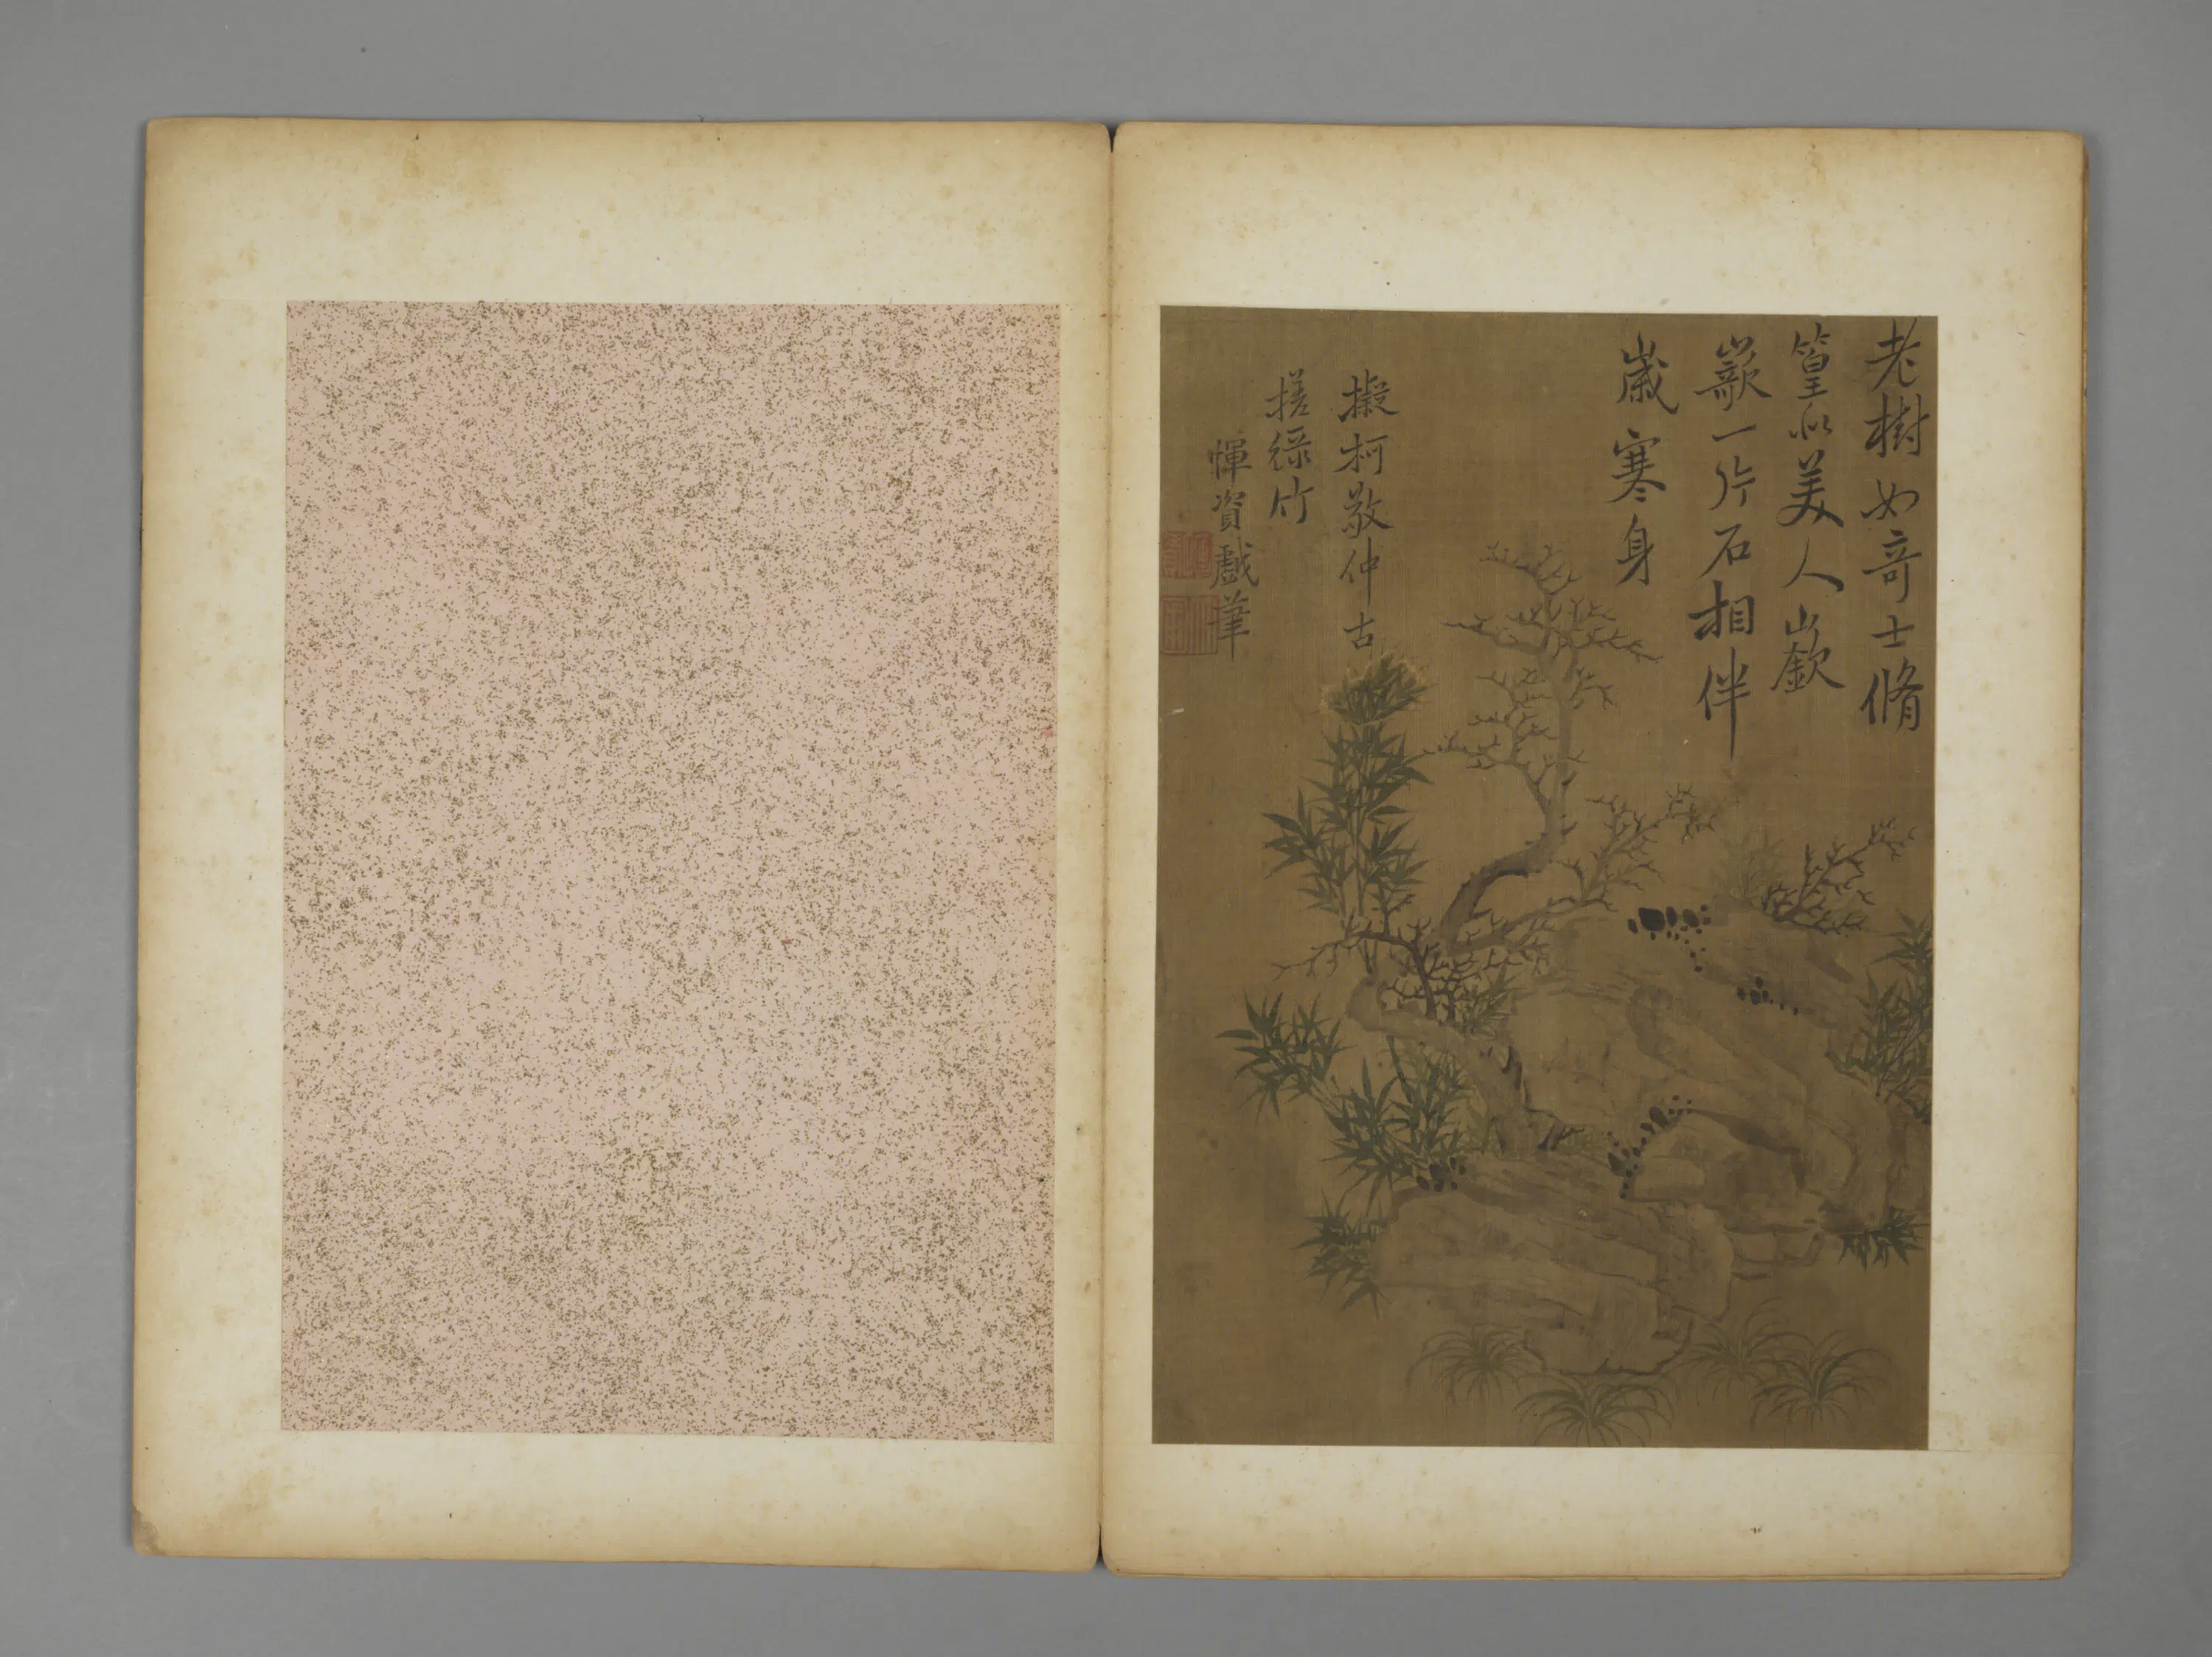 老樹如奇士脩
篁似美人嶔
嶔一片石相伴
歲寒身
擬柯敬仲古
槎綠竹
惲資戲筆